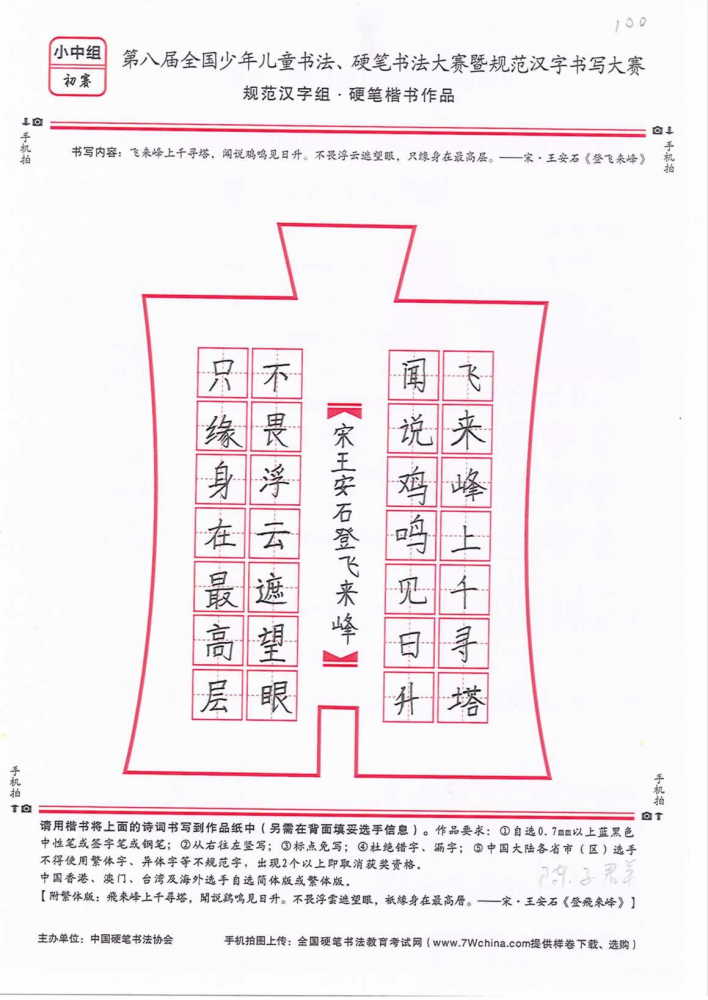 100
小中组
初赛
第八届全国少年儿童书法、硬笔书法大赛暨规范汉字书写大赛
规范汉字组·硬笔楷书作品
手机拍
手机拍
书写内容：飞来峰上千寻塔，闻说鸡鸣见日升。不畏浮云遮望眼，只缘身在最高层。——宋·王安石《登飞来峰》
飞来峰上千寻塔
闻说鸡鸣见日升
宋王安石登飞来峰
不畏浮云遮望眼
只缘身在最高层
手机拍
手机拍
请用楷书将上面的诗词书写到作品纸中（另需在背面填妥选手信息）。作品要求：①自选0.7mm以上蓝黑色
中性笔或签字笔或钢笔；②从右往左竖写；③标点免写；④杜绝错字、漏字；⑤中国大陆各省市（区）选手
不得使用繁体字、异体字等不规范字，出现2个以上即取消获奖资格。
中国香港、澳门、台湾及海外选手自选简体版或繁体版。
陈子
【附繁体版：飛來峰上千尋塔，聞說鷄鳴見日升。不畏浮雲遮望眼，衹緣身在最高層。——宋·王安石《登飛來峰》】
主办单位：中国硬笔书法协会
手机拍图上传：全国硬笔书法教育考试网（www.7Wchina.com提供样卷下载、选购）